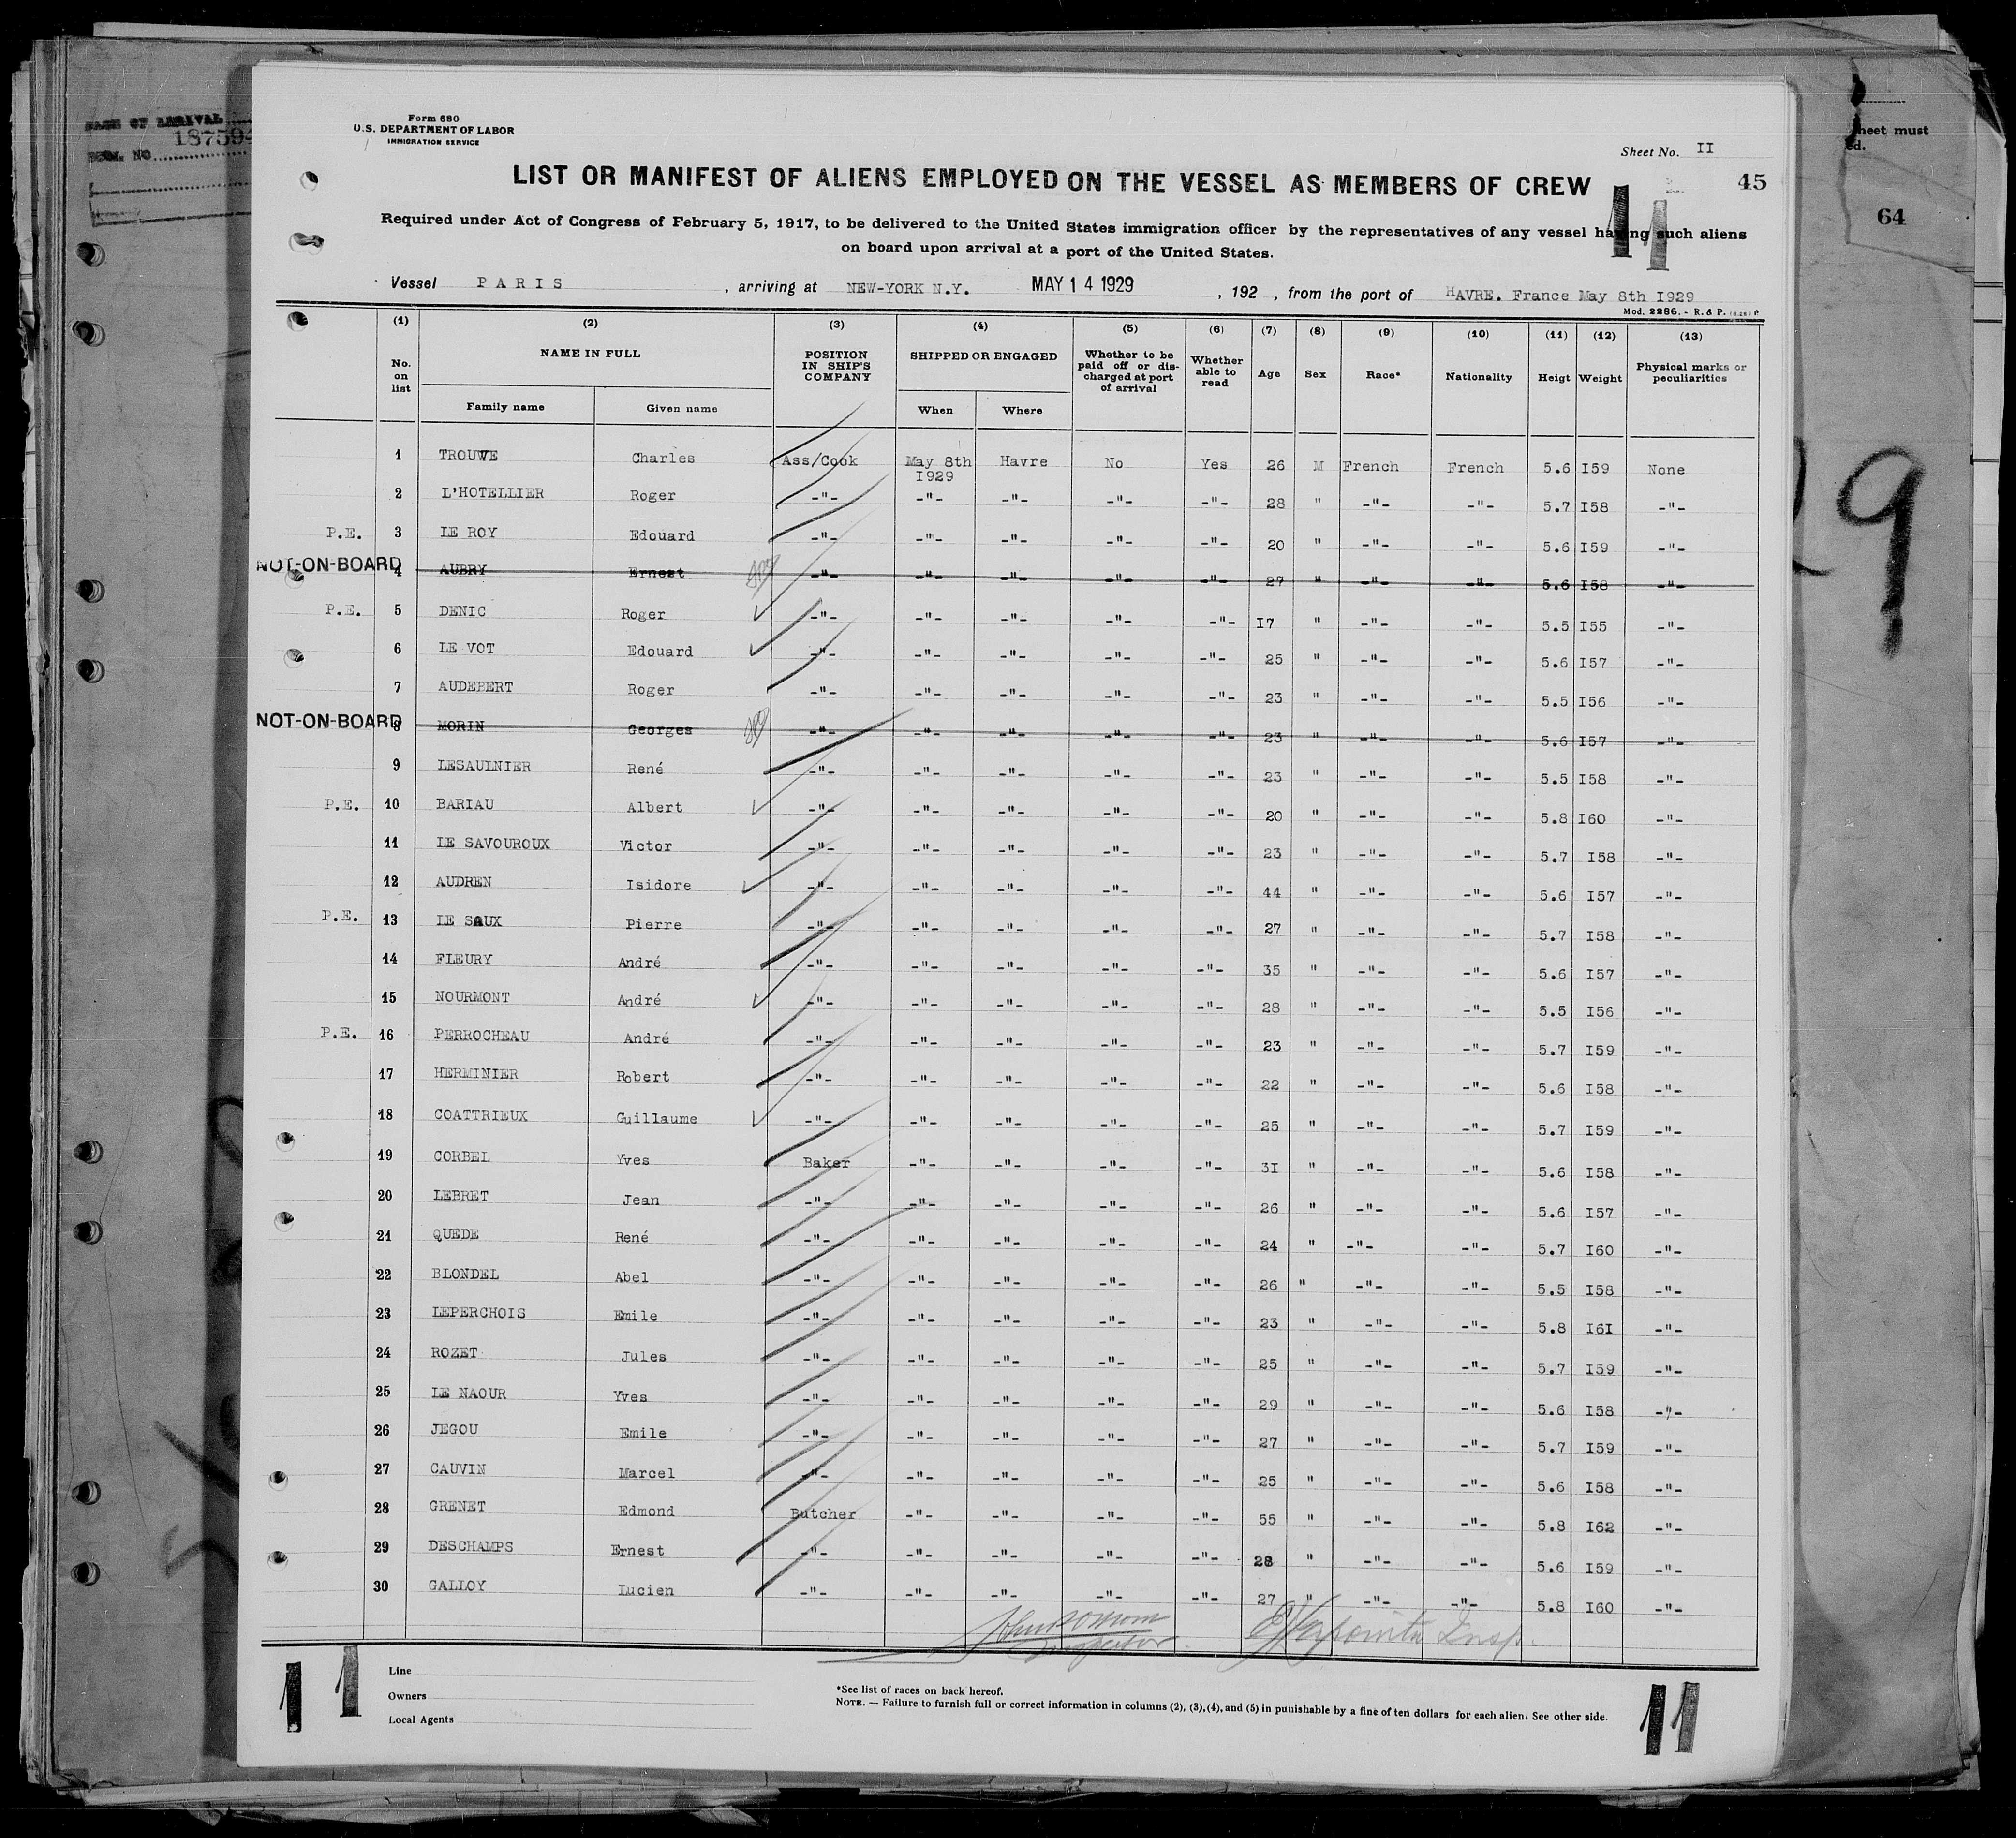 NAME OF ARRIVAL
187594
Form 680
U.S. DEPARTMENT OF LABOR
IMMIGRATION SERVICE
Sheet No. II
LIST OR MANIFEST OF ALIENS EMPLOYED ON THE VESSEL AS MEMBERS OF CREW
45
64
heet must
ed.
Required under Act of Congress of February 5, 1917, to be delivered to the United States immigration officer by the representatives of any vessel having such aliens
on board upon arrival at a port of the United States.
11
Vessel PARIS, arriving at NEW-YORK N.Y. MAY 14 1929, 192 , from the port of HAVRE. France May 8th I929
Mod. 2286. - R. & P.
(1) (2) (3) (4) (5) (6) (7) (8) (9) (10) (11) (12) (13)
No. on list NAME IN FULL POSITION IN SHIP'S COMPANY SHIPPED OR ENGAGED Whether to be paid off or discharged at port of arrival Whether able to read Age Sex Race* Nationality Heigt Weight Physical marks or peculiarities
Family name Given name When Where
1 TROUWE Charles Ass/Cook May 8th I929 Havre No Yes 26 M French French 5.6 I59 None
2 L'HOTELLIER Roger -"- -"- -"- -"- -"- 28 " -"- -"- 5.7 I58 -"-
P.E. 3 LE ROY Edouard -"- -"- -"- -"- -"- 20 " -"- -"- 5.6 I59 -"-
NOT-ON-BOARD 4 AUBRY Ernest -"- -"- -"- -"- -"- 27 " -"- -"- 5.6 I58 -"-
P.E. 5 DENIC Roger -"- -"- -"- -"- -"- I7 " -"- -"- 5.5 I55 -"-
6 LE VOT Edouard -"- -"- -"- -"- -"- 25 " -"- -"- 5.6 I57 -"-
7 AUDEBERT Roger -"- -"- -"- -"- -"- 23 " -"- -"- 5.5 I56 -"-
NOT-ON-BOARD 8 MORIN Georges -"- -"- -"- -"- -"- 23 " -"- -"- 5.6 I57 -"-
9 LESAULNIER René -"- -"- -"- -"- -"- 23 " -"- -"- 5.5 I58 -"-
P.E. 10 BARIAU Albert -"- -"- -"- -"- -"- 20 " -"- -"- 5.8 I60 -"-
11 LE SAVOUROUX Victor -"- -"- -"- -"- -"- 23 " -"- -"- 5.7 I58 -"-
12 AUDREN Isidore -"- -"- -"- -"- -"- 44 " -"- -"- 5.6 I57 -"-
P.E. 13 LE SAUX Pierre -"- -"- -"- -"- -"- 27 " -"- -"- 5.7 I58 -"-
14 FLEURY André -"- -"- -"- -"- -"- 35 " -"- -"- 5.6 I57 -"-
15 NOURMONT André -"- -"- -"- -"- -"- 28 " -"- -"- 5.5 I56 -"-
P.E. 16 PERROCHEAU André -"- -"- -"- -"- -"- 23 " -"- -"- 5.7 I59 -"-
17 HERMINIER Robert -"- -"- -"- -"- -"- 22 " -"- -"- 5.6 I58 -"-
18 COATTRIEUX Guillaume -"- -"- -"- -"- -"- 25 " -"- -"- 5.7 I59 -"-
19 CORBEL Yves Baker -"- -"- -"- -"- 3I " -"- -"- 5.6 I58 -"-
20 LEBRET Jean -"- -"- -"- -"- -"- 26 " -"- -"- 5.6 I57 -"-
21 QUEDE René -"- -"- -"- -"- -"- 24 " -"- -"- 5.7 I60 -"-
22 BLONDEL Abel -"- -"- -"- -"- -"- 26 " -"- -"- 5.5 I58 -"-
23 LEPERCHOIS Emile -"- -"- -"- -"- -"- 23 " -"- -"- 5.8 I6I -"-
24 ROZET Jules -"- -"- -"- -"- -"- 25 " -"- -"- 5.7 I59 -"-
25 LE NAOUR Yves -"- -"- -"- -"- -"- 29 " -"- -"- 5.6 I58 -"-
26 JEGOU Emile -"- -"- -"- -"- -"- 27 " -"- -"- 5.7 I59 -"-
27 CAUVIN Marcel -"- -"- -"- -"- -"- 25 " -"- -"- 5.6 I58 -"-
28 GRENET Edmond Butcher -"- -"- -"- -"- 55 " -"- -"- 5.8 I62 -"-
29 DESCHAMPS Ernest -"- -"- -"- -"- -"- 28 " -"- -"- 5.6 I59 -"-
30 GALLOY Lucien -"- -"- -"- -"- -"- 27 " -"- -"- 5.8 I60 -"-
Inspector Insp.
11
Line
Owners
Local Agents
*See list of races on back hereof.
NOTE. — Failure to furnish full or correct information in columns (2), (3), (4), and (5) in punishable by a fine of ten dollars for each alien. See other side.
11